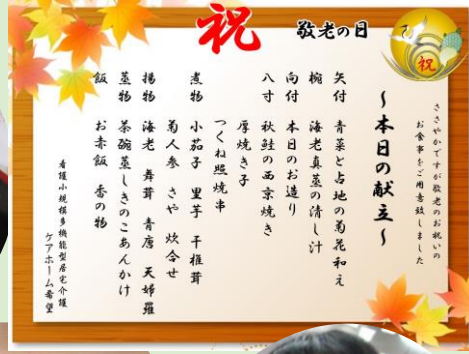 祝
敬老の日
祝
ささやかですが敬老のお祝いの
お食事をご用意致しました
～本日の献立～
矢付 青菜と占地の菊花和え
椀 海老真蒸の清し汁
向付 本日のお造り
八寸 秋鮭の西京焼き
厚焼き子
つくね照焼串
煮物 小茄子 里芋 干椎茸
菊人参 さや 炊合せ
揚物 海老 舞茸 青唐 天婦羅
蒸物 茶碗蒸しきのこあんかけ
飯 お赤飯 香の物
看護小規模多機能型居宅介護
ケアホーム希望